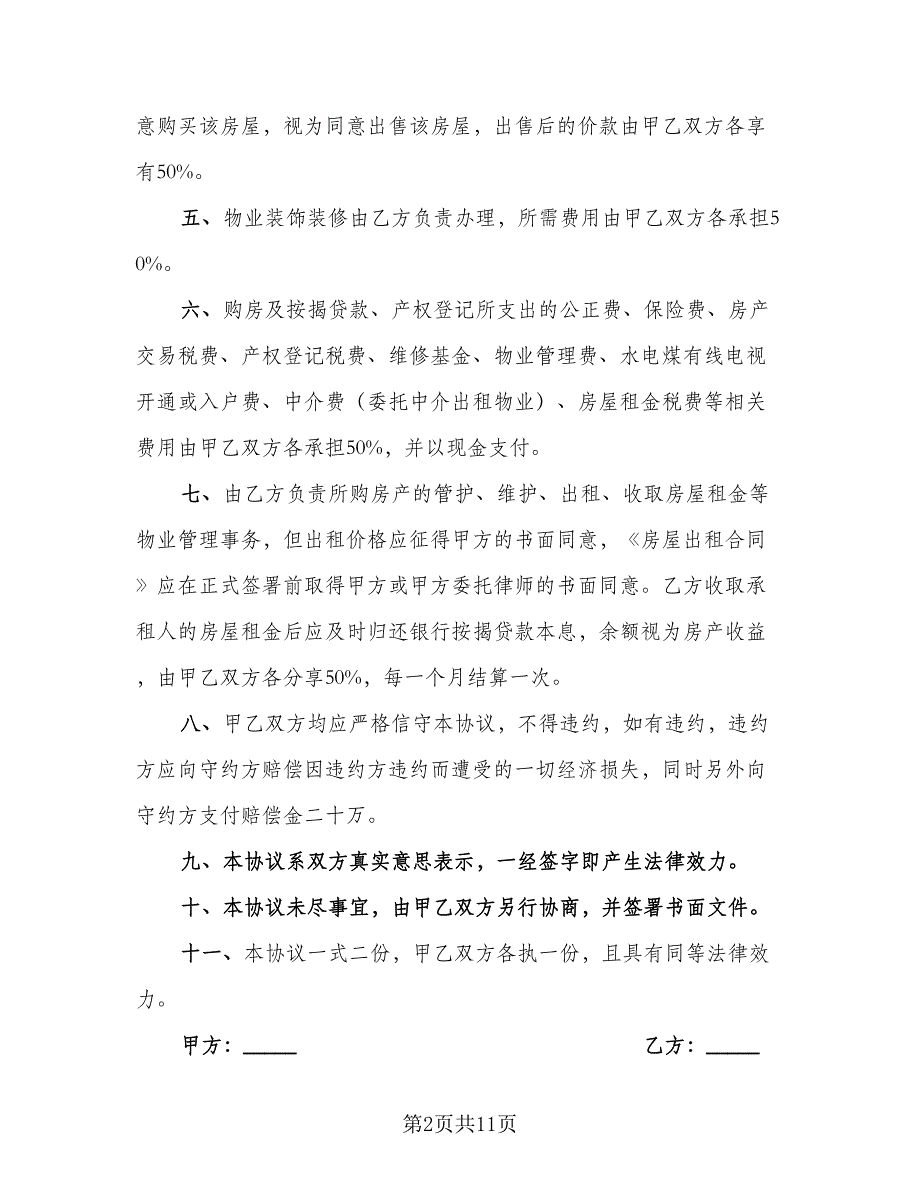 意购买该房屋，视为同意出售该房屋，出售后的价款由甲乙双方各享
有50%。
五、物业装饰装修由乙方负责办理，所需费用由甲乙双方各承担5
0%。
六、购房及按揭贷款、产权登记所支出的公正费、保险费、房产
交易税费、产权登记税费、维修基金、物业管理费、水电煤有线电视
开通或入户费、中介费（委托中介出租物业）、房屋租金税费等相关
费用由甲乙双方各承担50%，并以现金支付。
七、由乙方负责所购房产的管护、维护、出租、收取房屋租金等
物业管理事务，但出租价格应征得甲方的书面同意，《房屋出租合同
》应在正式签署前取得甲方或甲方委托律师的书面同意。乙方收取承
租人的房屋租金后应及时归还银行按揭贷款本息，余额视为房产收益
，由甲乙双方各分享50%，每一个月结算一次。
八、甲乙双方均应严格信守本协议，不得违约，如有违约，违约
方应向守约方赔偿因违约方违约而遭受的一切经济损失，同时另外向
守约方支付赔偿金二十万。
九、本协议系双方真实意思表示，一经签字即产生法律效力。
十、本协议未尽事宜，由甲乙双方另行协商，并签署书面文件。
十一、本协议一式二份，甲乙双方各执一份，且具有同等法律效
力。
甲方：_____ 乙方：_____
第2页共11页